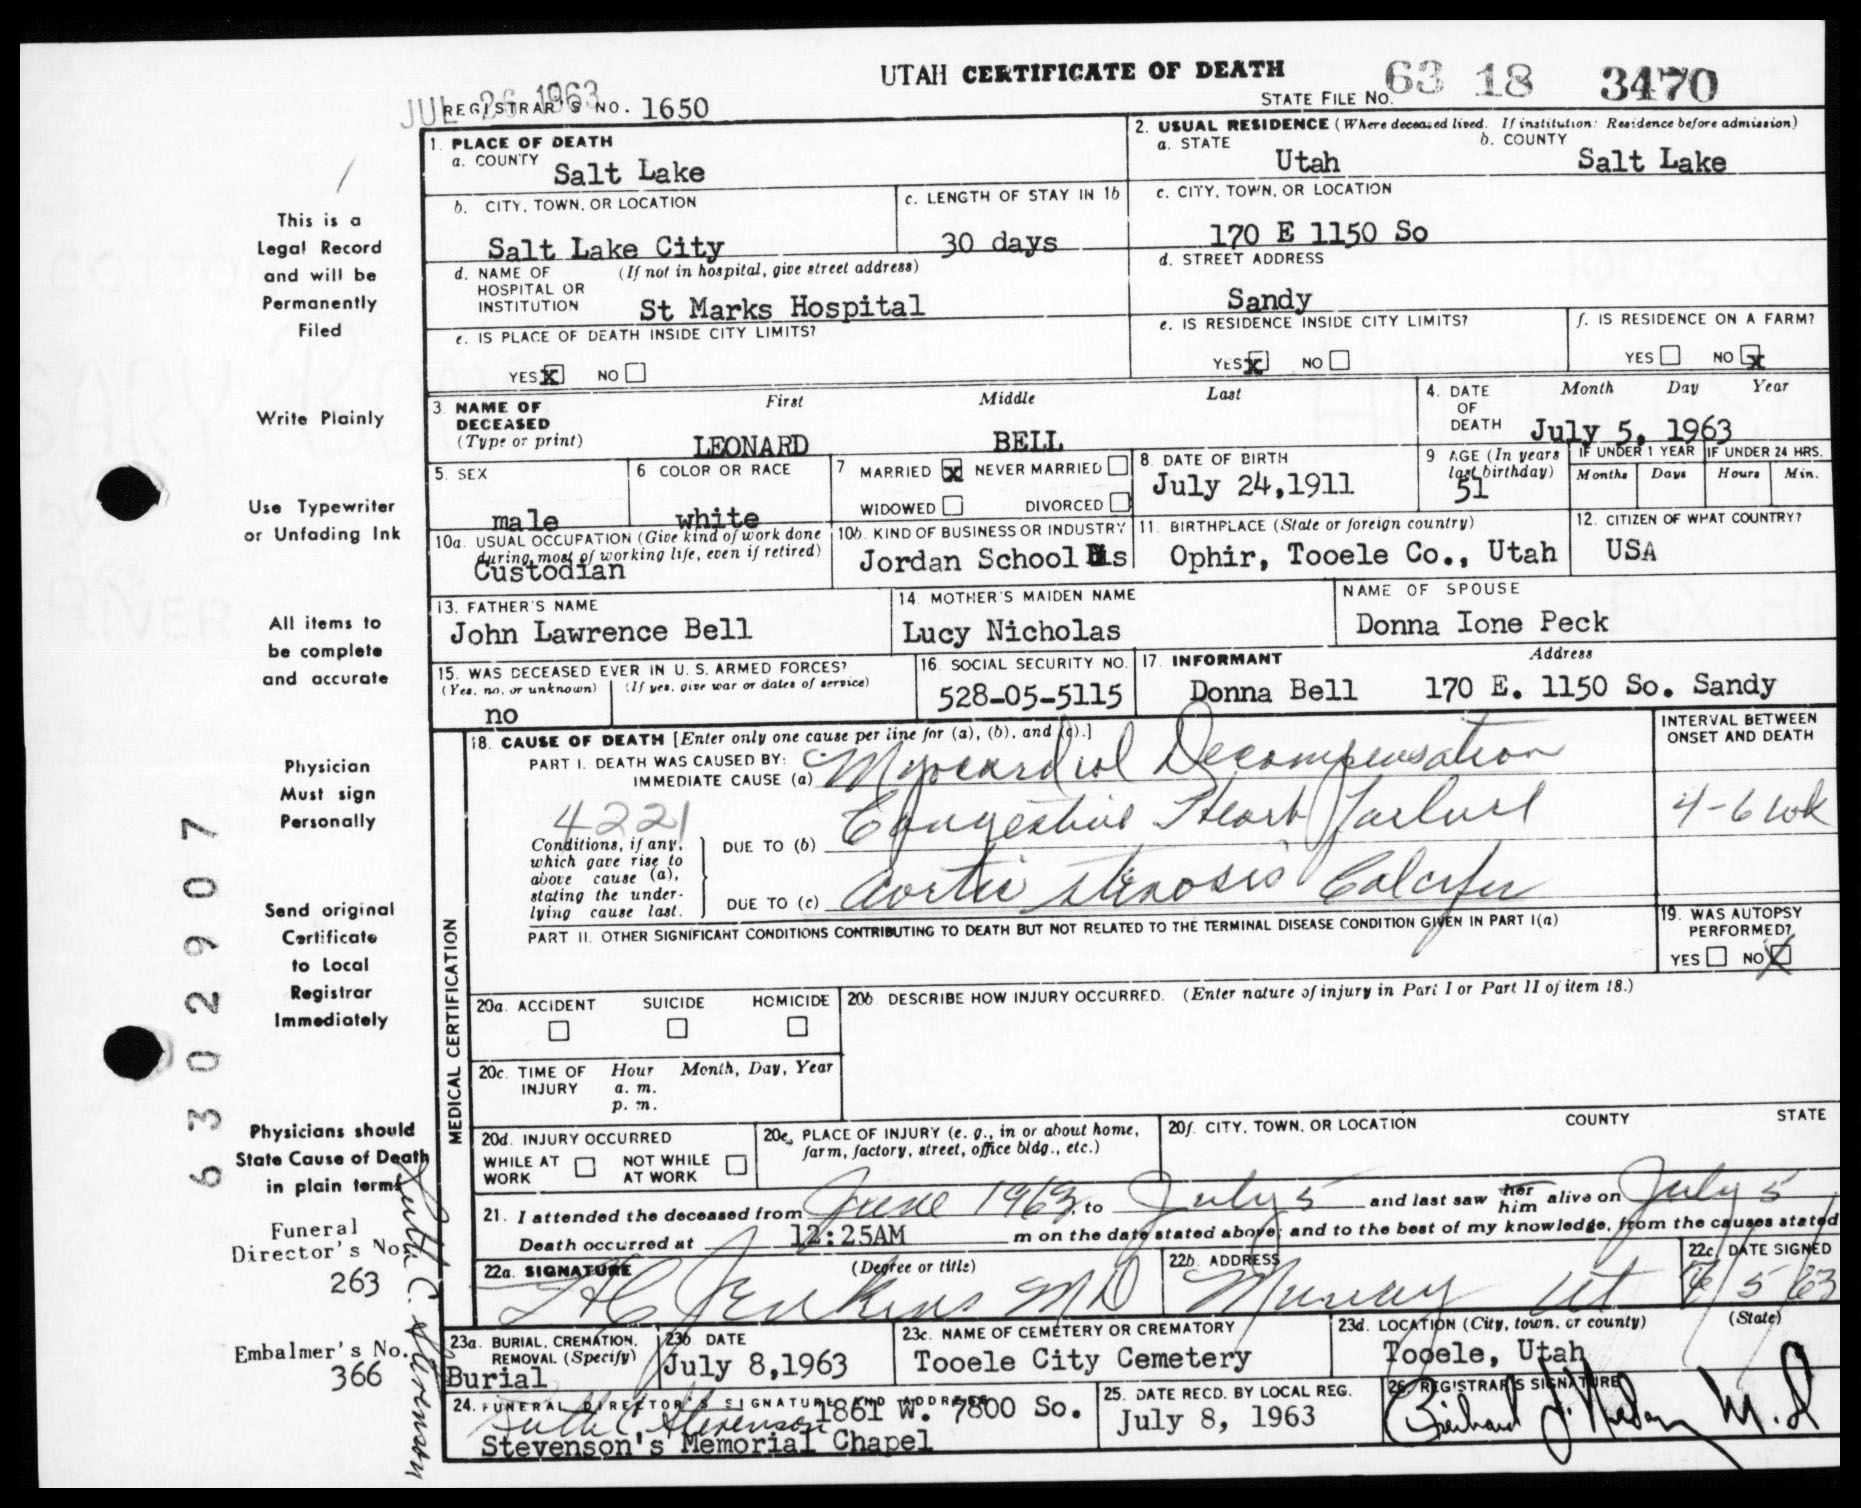 UTAH CERTIFICATE OF DEATH
JUL 26 1963
REGISTRAR'S NO. 1650
STATE FILE NO. 63 18 3470
1. PLACE OF DEATH
a. COUNTY
Salt Lake
2. USUAL RESIDENCE (Where deceased lived. If institution: Residence before admission)
a. STATE b. COUNTY
Utah Salt Lake
b. CITY, TOWN, OR LOCATION
Salt Lake City
c. LENGTH OF STAY IN 1b
30 days
c. CITY, TOWN, OR LOCATION
170 E 1150 So
d. NAME OF HOSPITAL OR INSTITUTION (If not in hospital, give street address)
St Marks Hospital
d. STREET ADDRESS
Sandy
e. IS PLACE OF DEATH INSIDE CITY LIMITS?
YES X NO
e. IS RESIDENCE INSIDE CITY LIMITS?
YES X NO
f. IS RESIDENCE ON A FARM?
YES NO X
3. NAME OF DECEASED (Type or print)
First Middle Last
LEONARD BELL
4. DATE OF DEATH Month Day Year
July 5, 1963
5. SEX
male
6 COLOR OR RACE
white
7 MARRIED X NEVER MARRIED
WIDOWED DIVORCED
8. DATE OF BIRTH
July 24,1911
9 AGE (In years last birthday)
51
IF UNDER 1 YEAR
Months Days
IF UNDER 24 HRS.
Hours Min.
10a. USUAL OCCUPATION (Give kind of work done during most of working life, even if retired)
Custodian
10b. KIND OF BUSINESS OR INDUSTRY
Jordan School Dis
11. BIRTHPLACE (State or foreign country)
Ophir, Tooele Co., Utah
12. CITIZEN OF WHAT COUNTRY?
USA
13. FATHER'S NAME
John Lawrence Bell
14. MOTHER'S MAIDEN NAME
Lucy Nicholas
NAME OF SPOUSE
Donna Ione Peck
15. WAS DECEASED EVER IN U. S. ARMED FORCES?
(Yes, no, or unknown) (If yes, give war or dates of service)
no
16. SOCIAL SECURITY NO.
528-05-5115
17. INFORMANT Address
Donna Bell 170 E. 1150 So. Sandy
MEDICAL CERTIFICATION
18. CAUSE OF DEATH [Enter only one cause per line for (a), (b), and (c).]
PART I. DEATH WAS CAUSED BY:
IMMEDIATE CAUSE (a) Myocardial Decompensation
INTERVAL BETWEEN ONSET AND DEATH
4221
Conditions, if any, which gave rise to above cause (a), stating the underlying cause last.
DUE TO (b) Congestive Heart Failure 4-6 wk
DUE TO (c) Aortic stenosis
PART II. OTHER SIGNIFICANT CONDITIONS CONTRIBUTING TO DEATH BUT NOT RELATED TO THE TERMINAL DISEASE CONDITION GIVEN IN PART I(a)
19. WAS AUTOPSY PERFORMED?
YES NO X
20a. ACCIDENT SUICIDE HOMICIDE
20b. DESCRIBE HOW INJURY OCCURRED. (Enter nature of injury in Part I or Part II of item 18.)
20c. TIME OF INJURY Hour Month, Day, Year
a. m.
p. m.
20d. INJURY OCCURRED
WHILE AT WORK NOT WHILE AT WORK
20e. PLACE OF INJURY (e. g., in or about home, farm, factory, street, office bldg., etc.)
20f. CITY, TOWN, OR LOCATION COUNTY STATE
21. I attended the deceased from June 1963, to July 5 and last saw her him alive on July 5
Death occurred at 12:25AM m on the date stated above; and to the best of my knowledge, from the causes stated
22a. SIGNATURE (Degree or title)
Jenkins MD
22b. ADDRESS
Murray Ut
22c. DATE SIGNED
7/5/63
23a. BURIAL, CREMATION, REMOVAL (Specify)
Burial
23b DATE
July 8,1963
23c. NAME OF CEMETERY OR CREMATORY
Tooele City Cemetery
23d. LOCATION (City, town, or county) (State)
Tooele, Utah
24. FUNERAL DIRECTOR'S SIGNATURE AND ADDRESS
Ruth C Stevenson 1861 W. 7800 So.
Stevenson's Memorial Chapel
25. DATE RECD. BY LOCAL REG.
July 8, 1963
26. REGISTRAR'S SIGNATURE
M.D
This is a
Legal Record
and will be
Permanently
Filed
Write Plainly
Use Typewriter
or Unfading Ink
All items to
be complete
and accurate
Physician
Must sign
Personally
Send original
Certificate
to Local
Registrar
Immediately
Physicians should
State Cause of Death
in plain terms
Funeral
Director's No.
263
Embalmer's No.
366
Ruth C. Stevenson
6302907